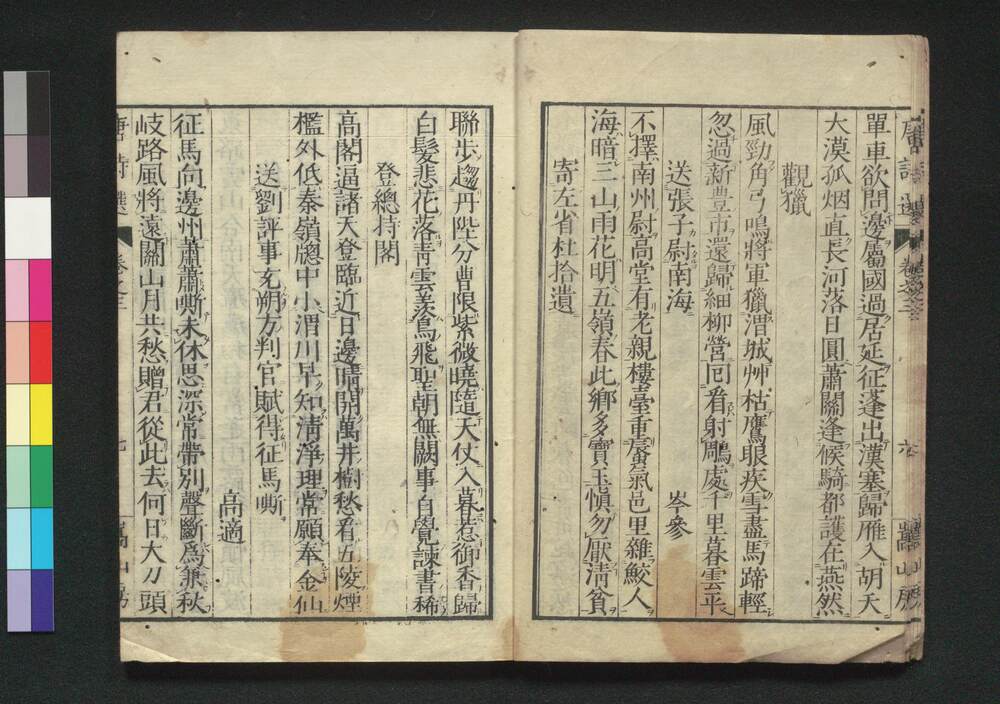 單車欲問邊屬國過居延征蓬出漢塞歸雁入胡天
大漠孤烟直長河落日圓蕭關逢候騎都護在燕然
觀獵
風勁角弓鳴將軍獵渭城艸枯鷹眼疾雪盡馬蹄輕
忽過新豊市還歸細柳營回看射鵰處千里暮雲平
送張子尉南海　岑參
不擇南州尉高堂有老親樓臺重蜃氣邑里雜鮫人
海暗三山雨花明五嶺春此鄉多寶玉愼勿厭淸貧
寄左省杜拾遺
聯歩趨丹陛分曹限紫微曉隨天仗入暮惹御香歸
白髮悲花落靑雲羨鳥飛聖朝無闕事自覺諫書稀
登總持閣
高閣逼諸天登臨近日邊晴開萬井樹愁看五陵煙
檻外低秦嶺牕中小渭川早知淸淨理常願奉金仙
送劉評事充朔方判官賦得征馬嘶
高適
征馬向邊州蕭蕭嘶未休思深常帶別聲斷爲兼秋
岐路風將遠關山月共愁贈君從此去何日大刀頭
唐詩選　卷之三　七　嵩山房